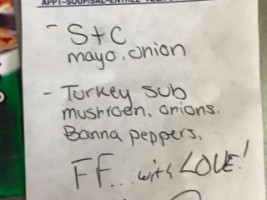 APPT-SOUP/SAL-ENTREE-VEG/
- S+C
mayo, onion
- Turkey Sub
mushroen, onions.
Banna peppers.
FF... with LOVE!